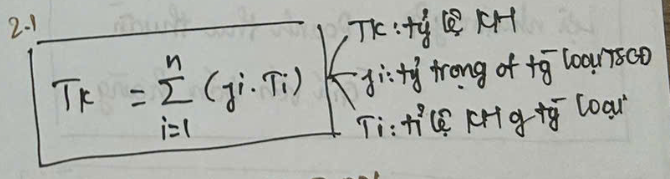 2.1
TK = Σ (ji . Ti)
n
i=1
TK: tỷ lệ KH
ji: tỷ trọng of tg̃ loại TSCĐ
Ti: tỉ lệ KH g tg̃ loại